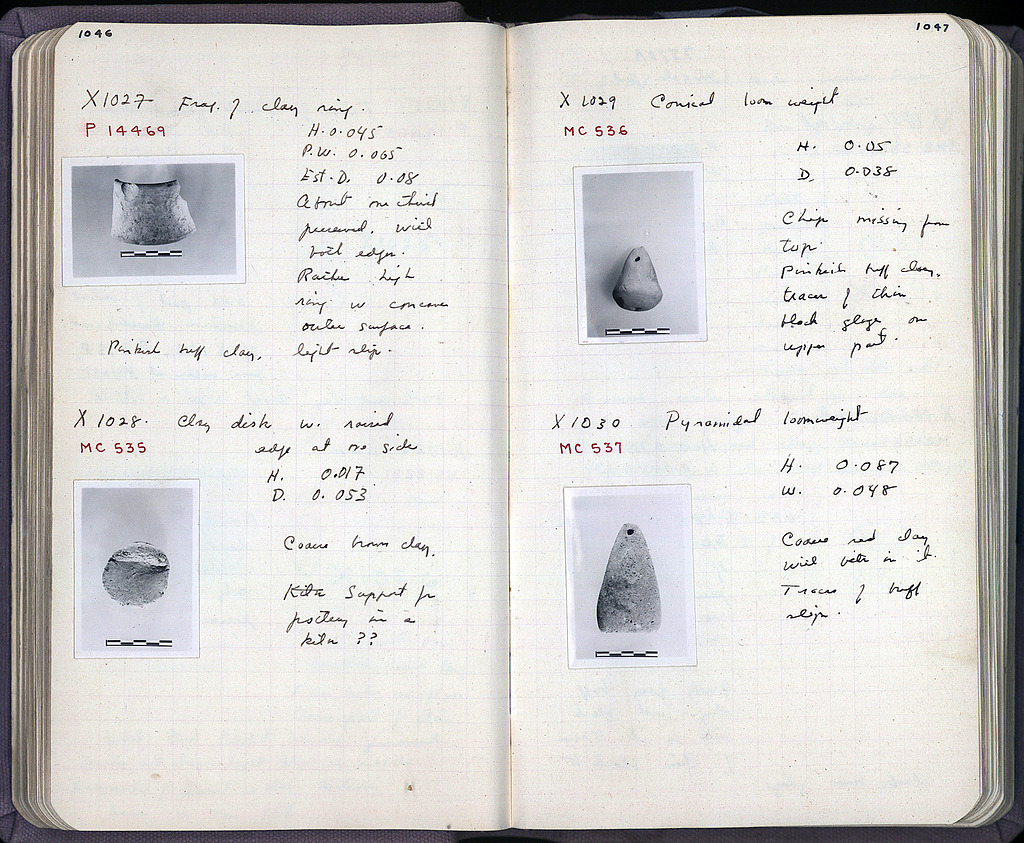 1046
X1027 Frag. of clay ring.
P 14469
H. 0.045
P.W. 0.065
Est. D. 0.08
About one third
preserved, with
both edges.
Rather high
ring w concave
outer surface.
Pinkish buff clay, light slip.
X 1028. Clay disk w. raised
edge at one side
MC 535
H. 0.017
D. 0.053
Coarse brown clay.
Kiln Support for
pottery in a
kiln ??
1047
X 1029 Conical loom weight
MC 536
H. 0.05
D. 0.038
Chip missing from
top.
Pinkish buff clay,
traces of thin
black glaze on
upper part.
X 1030 Pyramidal loomweight
MC 537
H. 0.087
W. 0.048
Coarse red clay
with bits in it.
Traces of buff
slip.